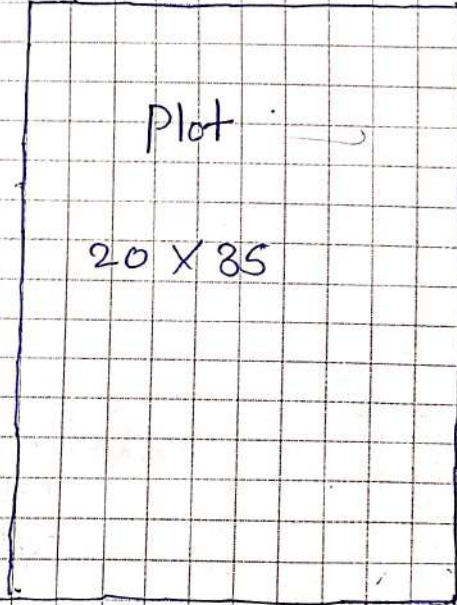 Plot
20 X 35